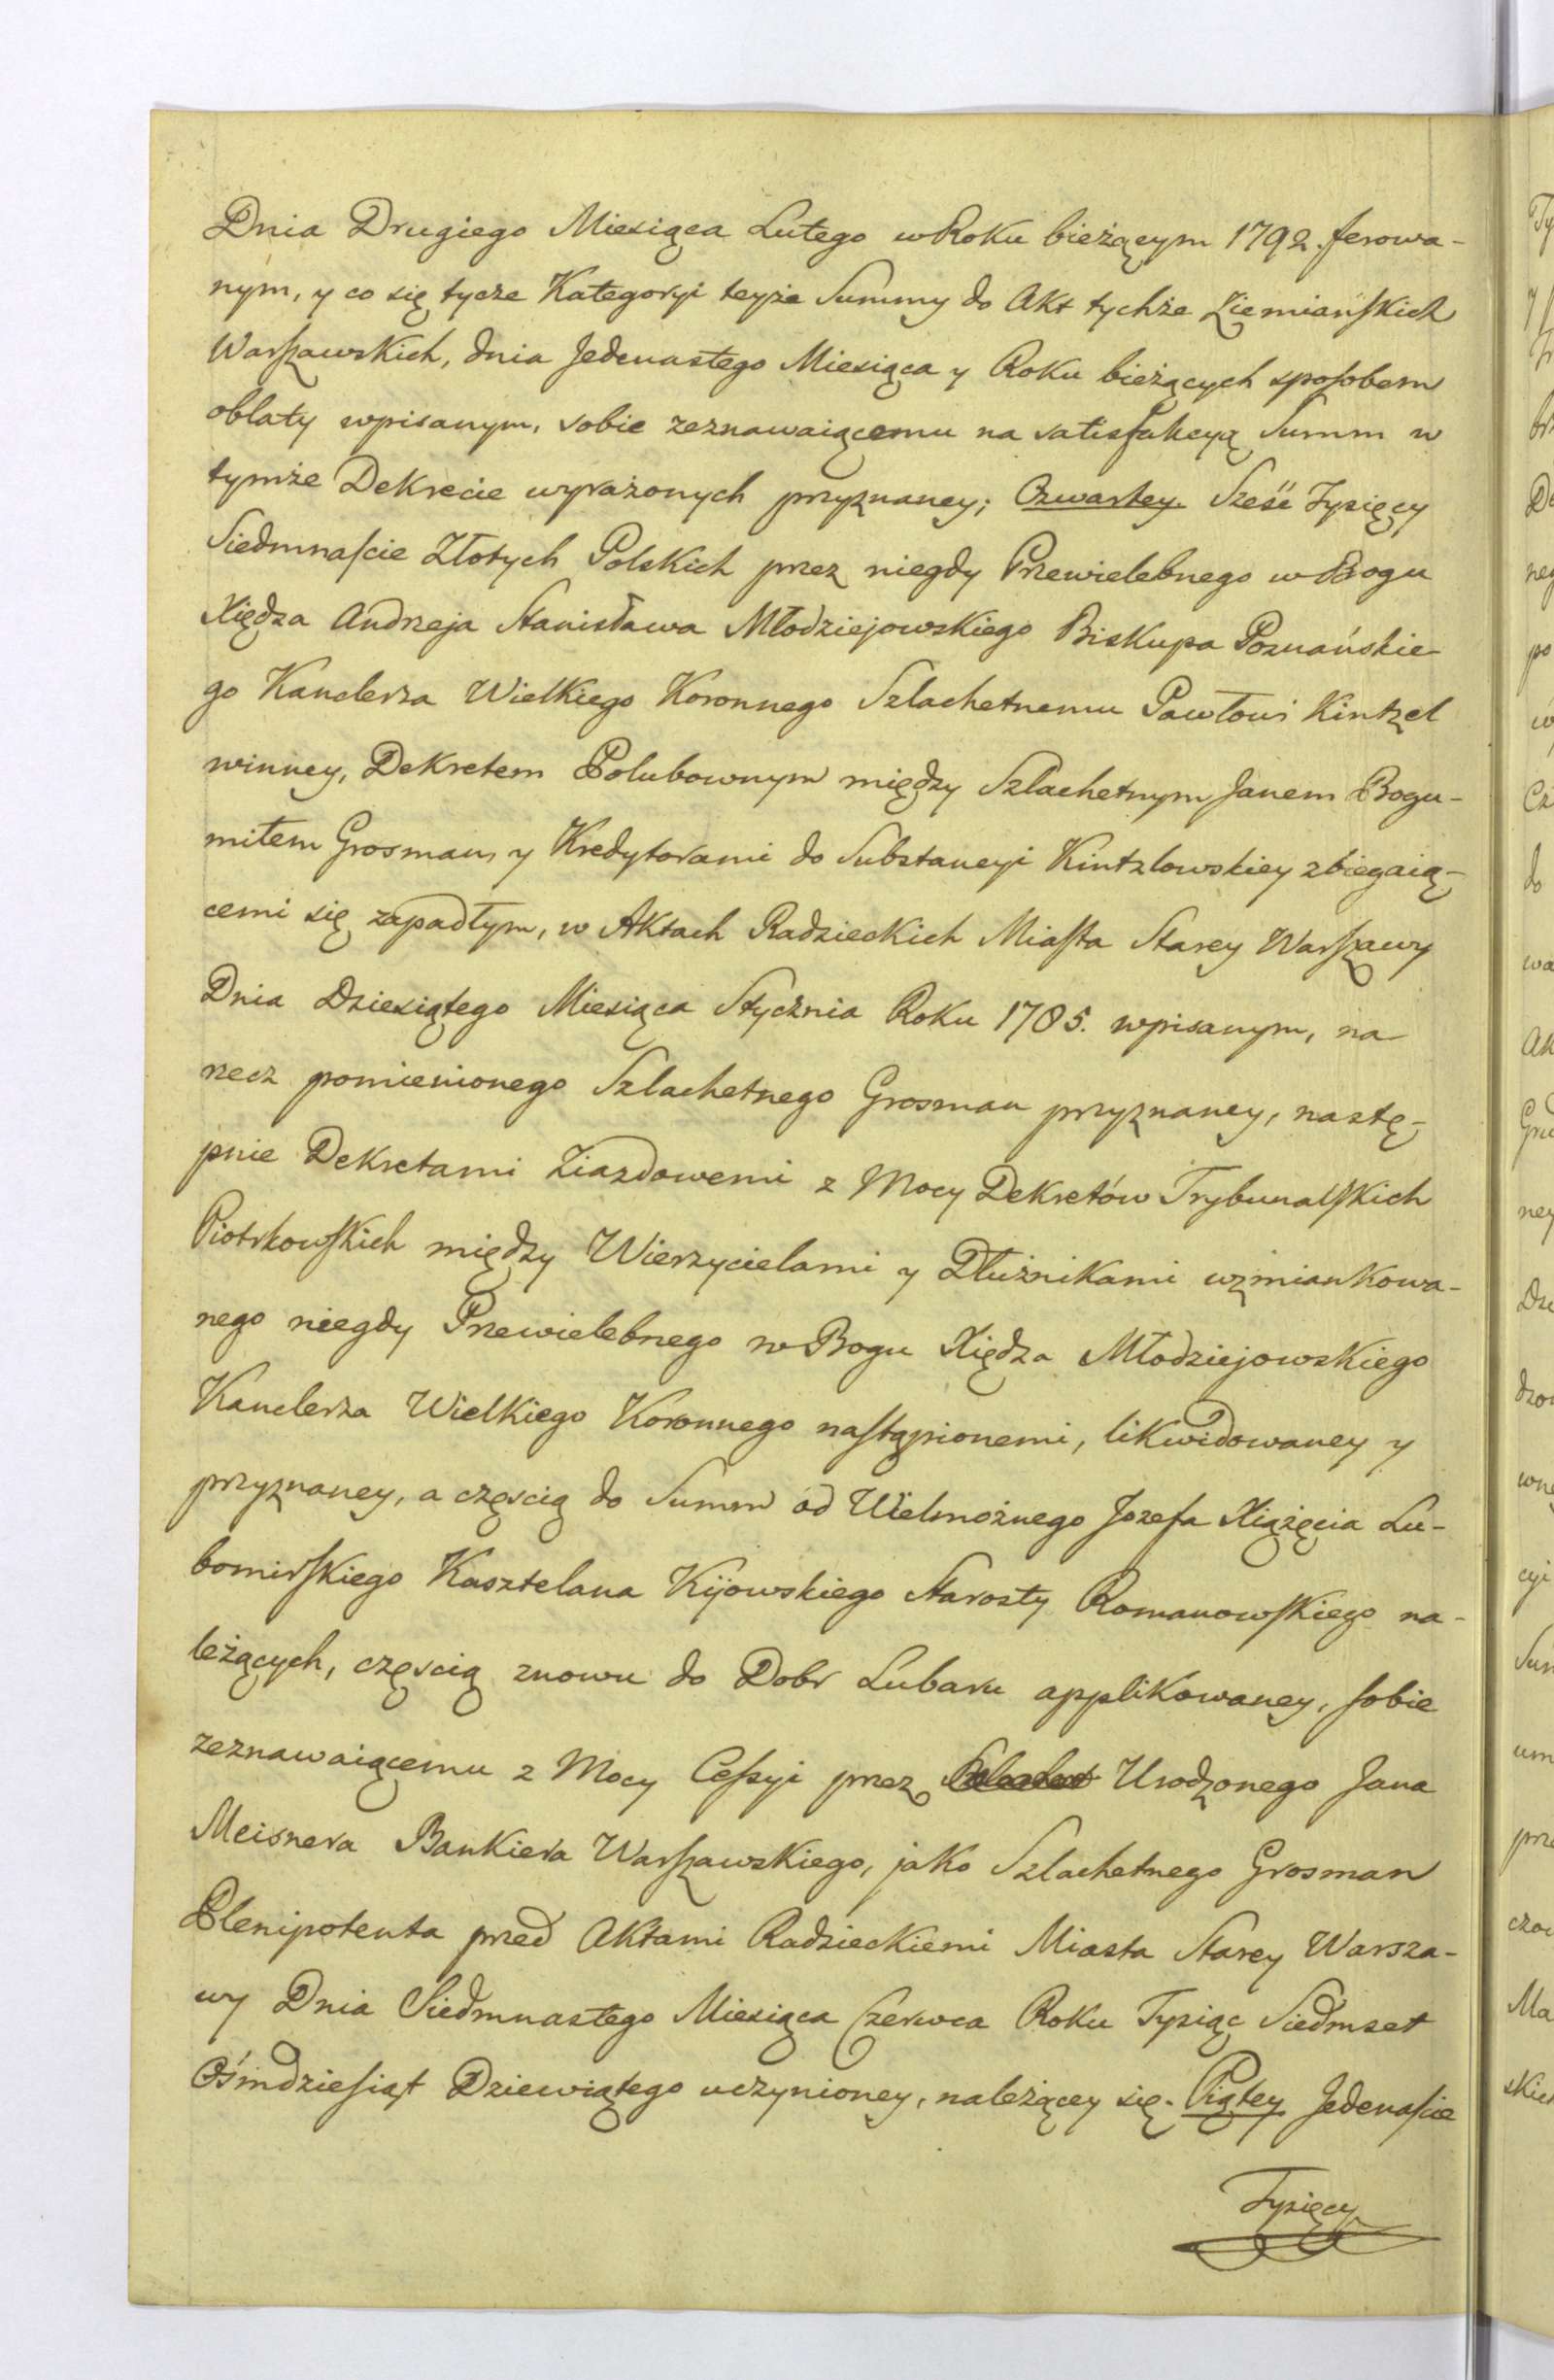 Dnia Drugiego Miesiąca Lutego w Roku bieżącym 1792. ferowa-
nym, y co się tycze Kategoryi teyże Summy do Akt tychże Ziemiańskich
Warszawskich, dnia Jedenastego Miesiąca y Roku bieżących sposobem
oblaty wpisanym, sobie zeznawaiącemu na satisfakcyą Summ w
tymże Dekrecie wyrażonych przyznaney; Czwartey. Sześć Tysięcy
Siedmnaście Złotych Polskich przez niegdy Przewielebnego w Bogu
Xiędza Andrzeja Stanisława Młodziejowskiego Biskupa Poznańskie-
go Kanclerza Wielkiego Koronnego Szlachetnemu Pawłowi Kintzel
winney, Dekretem Polubownym między Szlachetnym Janem Bogu-
miłem Grosman, y Kredytorami do Substancyi Kintzlowskiey zbiegaią-
cemi się zapadłym, w Aktach Radzieckich Miasta Starey Warszawy
Dnia Dziesiątego Miesiąca Stycznia Roku 1785. wpisanym, na
rzecz pomienionego Szlachetnego Grosman przyznaney, nastę-
pnie Dekretami Ziazdowemi z Mocy Dekretów Trybunalskich
Piotrkowskich między Wierzycielami y Dłużnikami wzmiankowa-
nego niegdy Przewielebnego w Bogu Xiędza Młodziejowskiego
Kanclerza Wielkiego Koronnego nastąpionemi, likwidowaney y
przyznaney, a częscią do Summ od Wielmożnego Jozefa Xiążęcia Lu-
bomirskiego Kasztelana Kijowskiego Starosty Romanowskiego na-
leżących, częscią znowu do Dobr Lubaru applikowaney, sobie
zeznawaiącemu z Mocy Cessyi przez Urodzonego Jana
Meisnera Bankiera Warszawskiego, jako Szlachetnego Grosman
Plenipotenta przed Aktami Radzieckiemi Miasta Starey Warsza-
wy Dnia Siedmnastego Miesiąca Czerwca Roku Tysiąc Siedmset
Ośmdziesiąt Dziewiątego uczynioney, należącey się. Piątey Jedenaście
Tysięcy